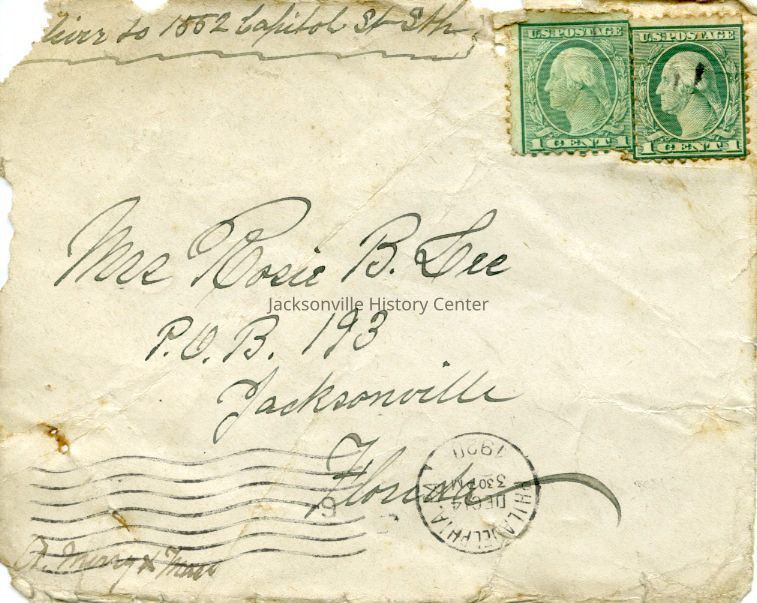 liver to 1562 Capitol St Sth
U.S. POSTAGE
1 CENT 1
U.S. POSTAGE
1 CENT 1
Mrs Rosie B. Lee
Jacksonville History Center
P.O.B. 193
Jacksonville
Florida
PHILADELPHIA, PA.
DEC 14
3 30 PM
1920
9
A. Merry X Mas